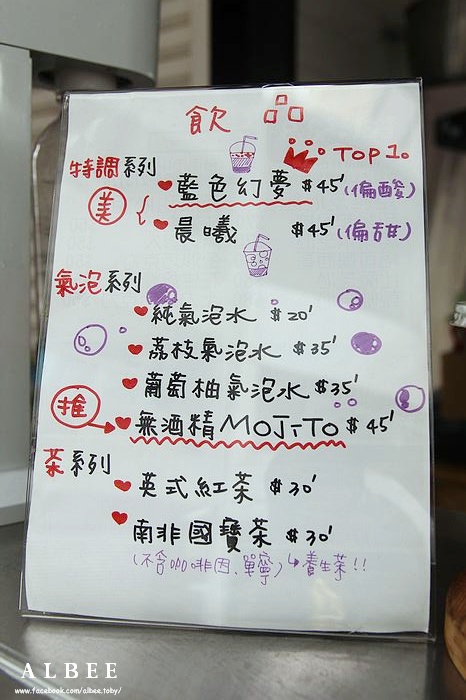 飲品
TOP 1.
特調系列
美
藍色幻夢 $45'(偏酸)
晨曦 $45'(偏甜)
氣泡系列
純氣泡水 $20'
荔枝氣泡水 $35'
葡萄柚氣泡水 $35'
推
無酒精MOJITO $45'
茶系列
英式紅茶 $30'
南非國寶茶 $30'
(不含咖啡因、單寧)↳養生茶!!
ALBEE
www.facebook.com/albee.toby/